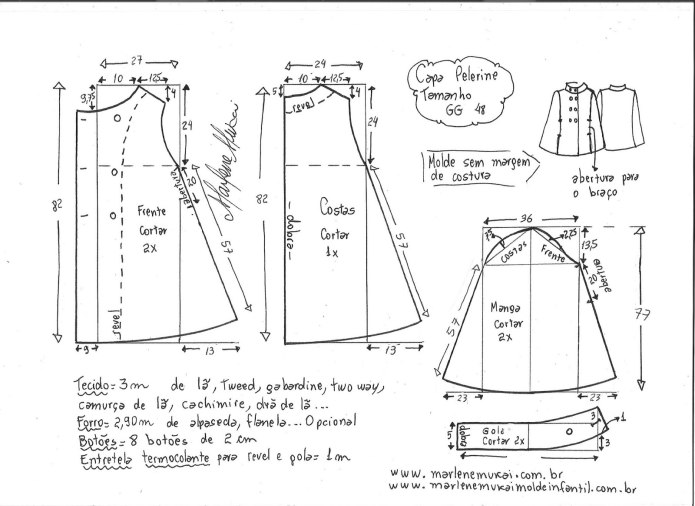 27
10 12,5
9,75
4
24
82
abertura
20
57
Frente
Cortar
2x
revel
9
13
Marlene Mukai
24
10 12,5
5
4
revel
24
82
dobra
Costas
Cortar
1x
57
13
Capa Pelerine
Tamanho
GG 48
Molde sem margem
de costura
abertura para o
braço
36
2,25
13,5
Costas
Frente
abertura
20
57
77
Manga
Cortar
2x
23
23
5
dobra
Gola
Cortar 2x
3
1
3
Tecido= 3m de lã, tweed, gabardine, two way,
camurça de lã, cachimire, drã de lã...
Forro= 2,90m de alpaseda, flanela... Opcional
Botões= 8 botões de 2 cm
Entretela termocolante para revel e gola= 1m
www.marlenemukai.com.br
www.marlenemukaimoldeinfantil.com.br